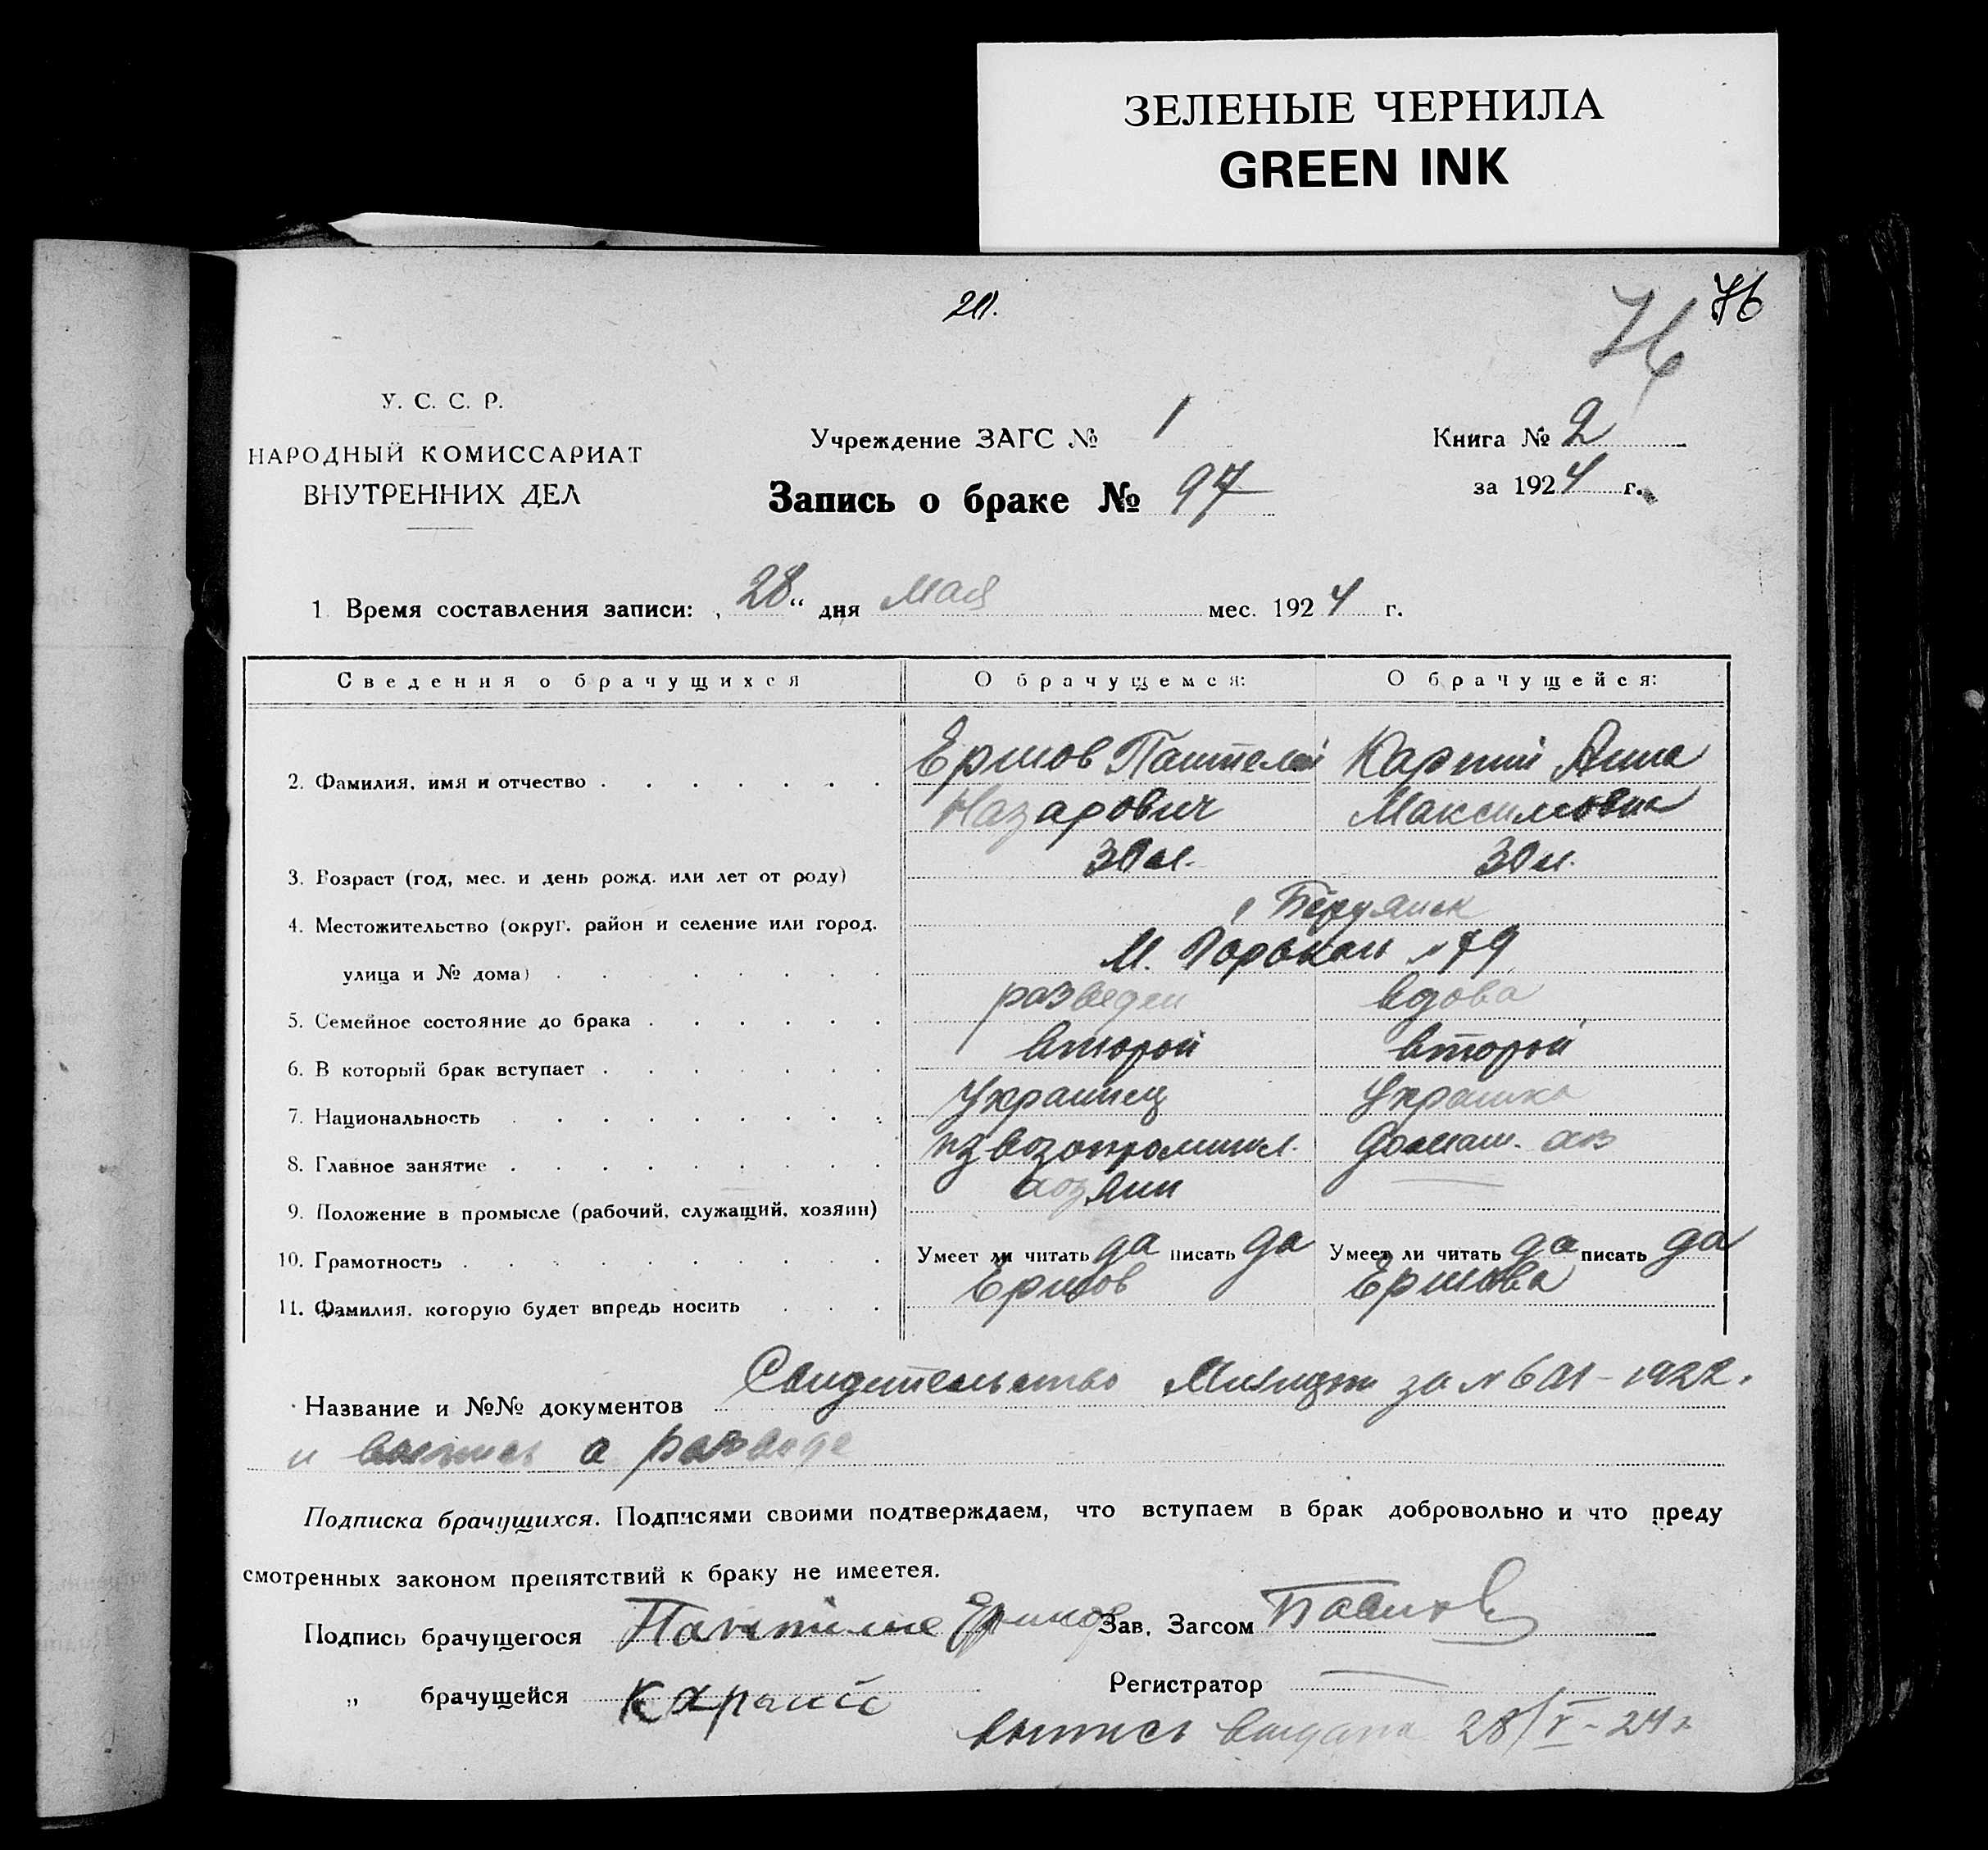 ЗЕЛЕНЫЕ ЧЕРНИЛА
GREEN INK
76
76
У. С. С. Р.
НАРОДНЫЙ КОМИССАРИАТ
ВНУТРЕННИХ ДЕЛ
Учреждение ЗАГС № 1
Запись о браке № 97
Книга № 2
за 1924 г.
1 Время составления записи: „28“ дня Мая мес. 1924 г.
Сведения о брачущихся О брачущемся: О брачущейся:
2. Фамилия, имя и отчество Ершов Пантелей Анна
Назарович Максимовна
3. Возраст (год, мес. и день рожд. или лет от роду) 30 л. 30 л.
4. Местожительство (округ, район и селение или город, Бердянск
улица и № дома) М. Горького № 79
5. Семейное состояние до брака разведен вдова
6. В который брак вступает второй второй
7. Национальность Украинец Украинка
8. Главное занятие извозопромышл. домаш. хоз
9. Положение в промысле (рабочий, служащий, хозяин) хозяин —
10. Грамотность Умеет ли читать да писать да Умеет ли читать да писать да
11. Фамилия, которую будет впредь носить Ершов Ершова
Название и №№ документов Свидетельство Милиции за № 601 – 1922.
и выпись о разводе
Подписка брачущихся. Подписями своими подтверждаем, что вступаем в брак добровольно и что преду
смотренных законом препятствий к браку не имеется.
Подпись брачущегося Ершов Зав. Загсом
„ брачущейся Регистратор —
выпись выдана 28/V – 24 г